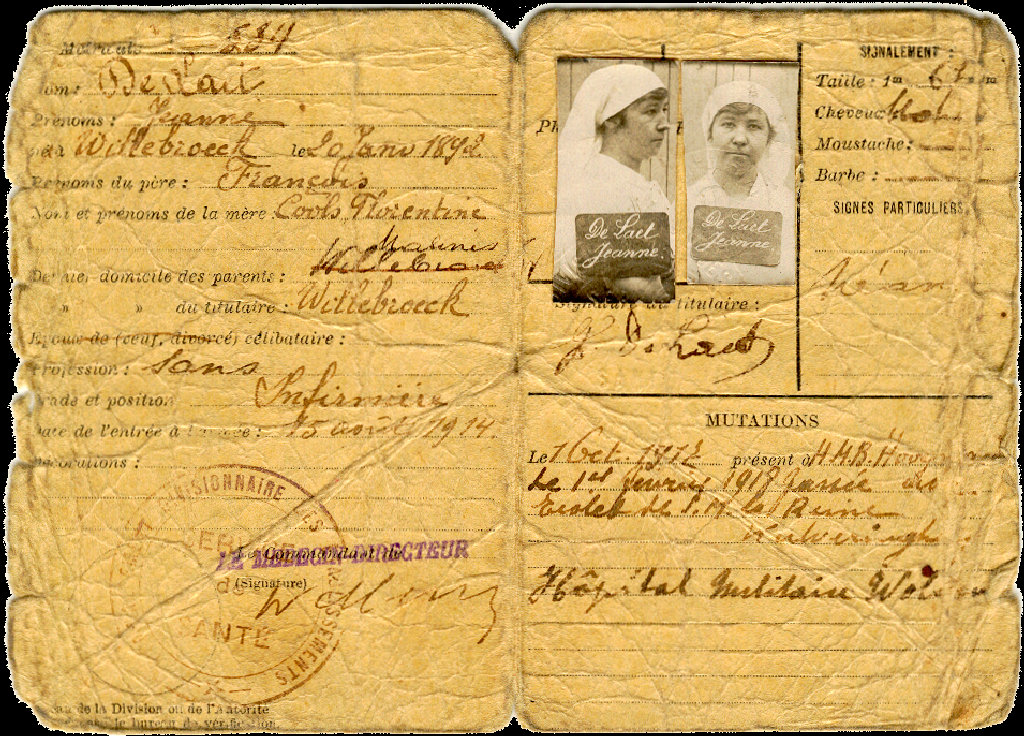 Matricule 584
Nom: De Laet
Prénoms: Jeanne
Willebroeck le 20 Janv 1892
Prénoms du père: François
Nom et prénoms de la mère Cools Florentine
Malines
Dernier domicile des parents: Willebroeck
" " du titulaire: Willebroeck
Epoux de (veuf, divorcé) célibataire:
Profession: Sans
Grade et position Infirmière
Date de l'entrée à l'armée: 15 août 1914.
Décorations:
Le Commandant de
LE MÉDECIN DIRECTEUR
(Signature)
SANTÉ
de la Division ou de l'Autorité
le bureau de vérification
De Laet
Jeanne.
De Laet
Jeanne.
Signature du titulaire:
J. De Laet
SIGNALEMENT:
Taille: 1m 61
Cheveux
Moustache:
Barbe:
SIGNES PARTICULIERS.
Néant
MUTATIONS
Le 1 Oct. 1917 présent à H.M.B.
Le 1er février 1918 Passée
de S. M. la Reine
Hôpital Militaire